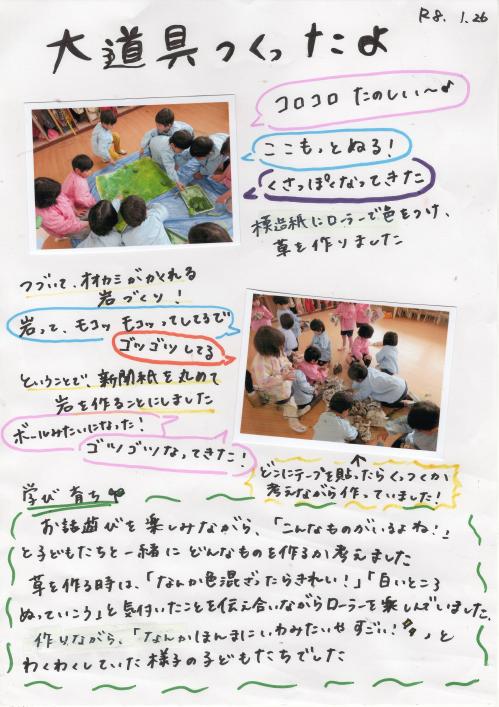 R8. 1.26
大道具つくったよ
コロコロ たのしい〜♪
ここもっとぬる!
くさっぽくなってきた
模造紙にローラーで色をつけ、
草を作りました
つづいて、オオカミがかくれる
岩づくり!
岩って、モコッ モコッってしてるで
ゴツゴツしてる
ということで、新聞紙を丸めて
岩を作ることにしました
ボールみたいになった!
ゴツゴツなってきた!
どこにテープを貼ったらくっつくか
考えながら作っていました!
学び 育ち
お話遊びを楽しみながら、「こんなものがいるよね!」
と子どもたちと一緒に どんなものを作るか考えました
草を作る時は、「なんか色混ざったらきれい!」「白いところ
ぬっていこう」と気付いたことを伝え合いながらローラーを楽しんでいました。
作りながら、「なんかほんまにいわみたいや すごい!」と
わくわくしていた様子の子どもたちでした